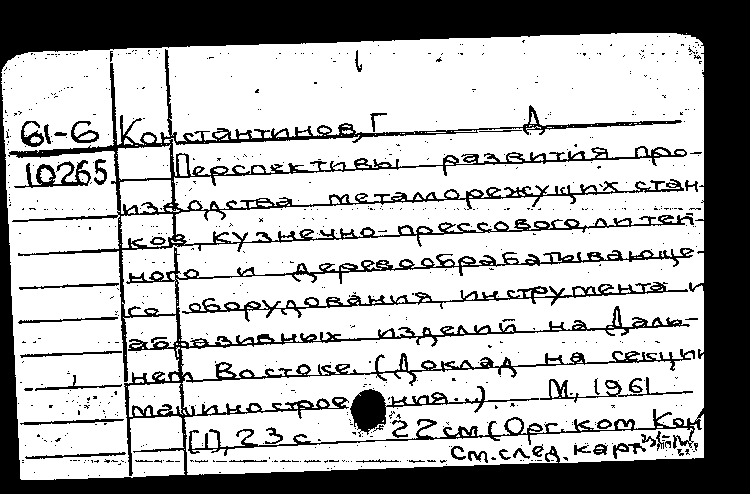 61-6 Константинов, Г Д
10265. Перспективы развития про-
изводства металлорежущих стан-
ков, кузнечно-прессового, литей-
ного и деревообрабатывающе-
го оборудования, инструмента и
абразивных изделий на Даль-
нем Востоке. (Доклад на секции
машиностроения...). М., 1961
[1], 23 с. 22 см (Орг. ком Кон
См. след. карт.